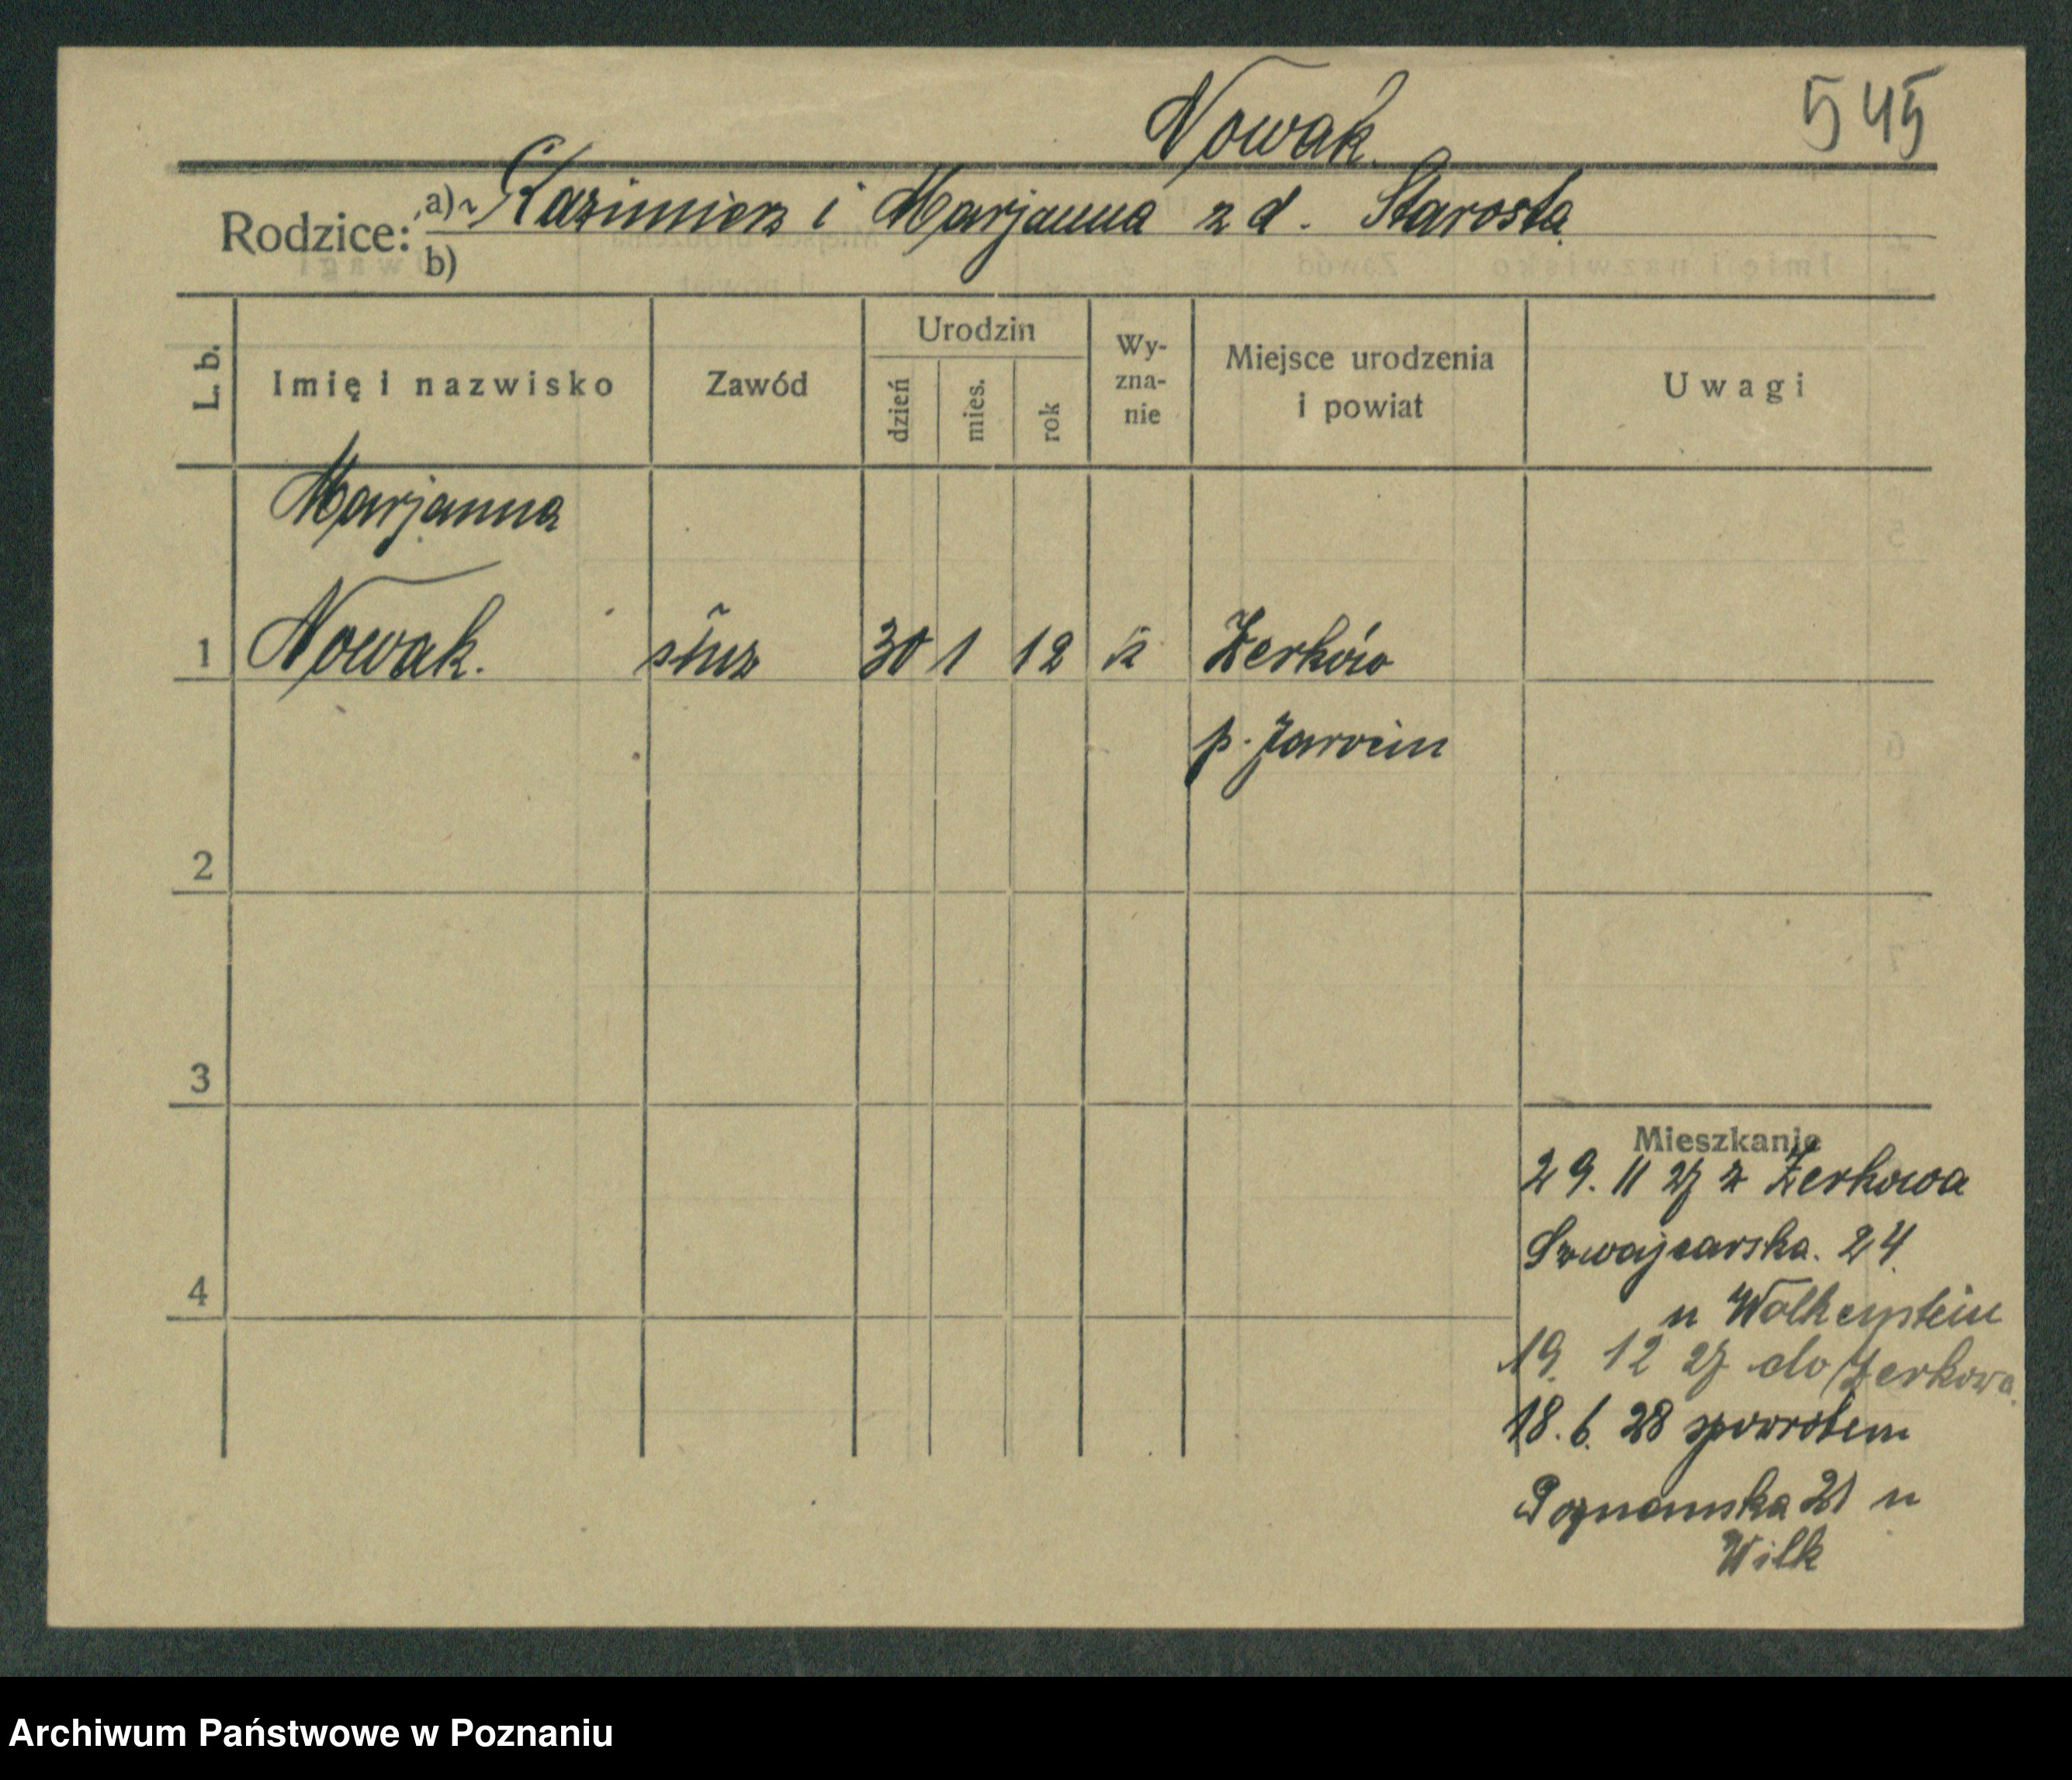 Nowak.
545
Rodzice: a) Kazimierz i Marjanna z d. Starosta
b)
L. b.
Imię i nazwisko
Zawód
Urodzin
dzień
mies.
rok
Wy-
zna-
nie
Miejsce urodzenia
i powiat
Uwagi
Marjanna
1 Nowak. służ 30 1 12 k Żerków
p. Jarocin
2
3
4
Mieszkanie
29. 11 27 z Żerkowa
Szwajcarska. 24
u Wolkenstein
19. 12 27 do Żerkowa
18. 6. 28 spowrotem
Poznanska 21 u
Wilk
Archiwum Państwowe w Poznaniu